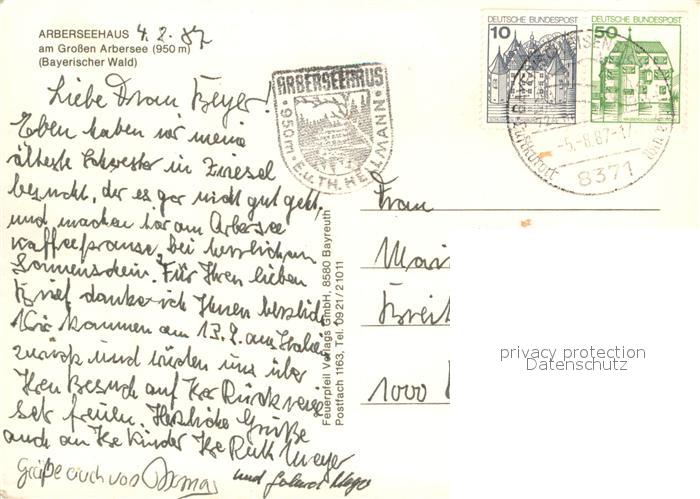 ARBERSEEHAUS 4.8.87
am Großen Arbersee (950 m)
(Bayerischer Wald)
Liebe Frau Beyer!
Eben haben wir meine
älteste Schwester in Zwiesel
besucht, der es gar nicht gut geht,
und machen hier am Arbersee
Kaffeepause bei herrlichem
Sonnenschein. Für Ihren lieben
Brief danke ich Ihnen herzlich.
Wir kommen am 13.9. aus Italien
zurück und würden uns über
Ihren Besuch auf der Rückreise
sehr freuen. Herzliche Grüße
auch an Ihre Kinder Ihre Ruth Meyer
Grüße auch von Thomas und
ARBERSEEHAUS
950m
E.u.TH. HELLMANN
DEUTSCHE BUNDESPOST
10
DEUTSCHE BUNDESPOST
50
-5.-8.87-17
Luftkurort
8371
Feuerpfeil Verlags GmbH, 8580 Bayreuth
Postfach 1163, Tel. 0921/21011
Frau
1000
privacy protection
Datenschutz